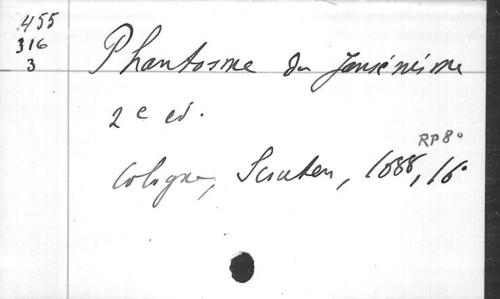 455
316
3
Phantosme du Jansénisme
2e ed.
RP8°
Cologne, Scouten, 1688, 16°